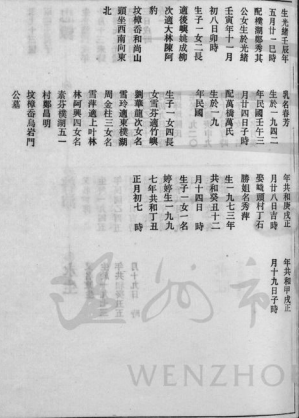 生光緒壬辰年
五月廿二巳時
配樸湖鄒秀其
公女生於光緒
壬寅年十一月
初八日卯時
生子一女二長
適後嶴姚成柳
次適大林陳阿
豹
墳樟岙和尚山
頭坐西南向東
北
乳名春芳
生於一九四二
年民國壬午三
月廿四日子時
配萬橋萬氏
生於一九
年民國
生子一女四長
女雪芬適竹嶼
劉華龍次女名
雪玲適東樸湖
周金柱三女名
雪萍適上叶林
林阿興四女名
素芬樸湖五一
村鄒昌明
墳樟岙烏岩门
公墓
年共和庚戌正
月廿八日吉時
娶嶼頭村丁石
勝姐名秀萍
生一九七三年
共和癸丑十二
月十四日 時
生子一女一名
婷婷生一九九
七年共和丁丑
正月初七 時
年共和甲戌正
月十九日子時
WENZHO